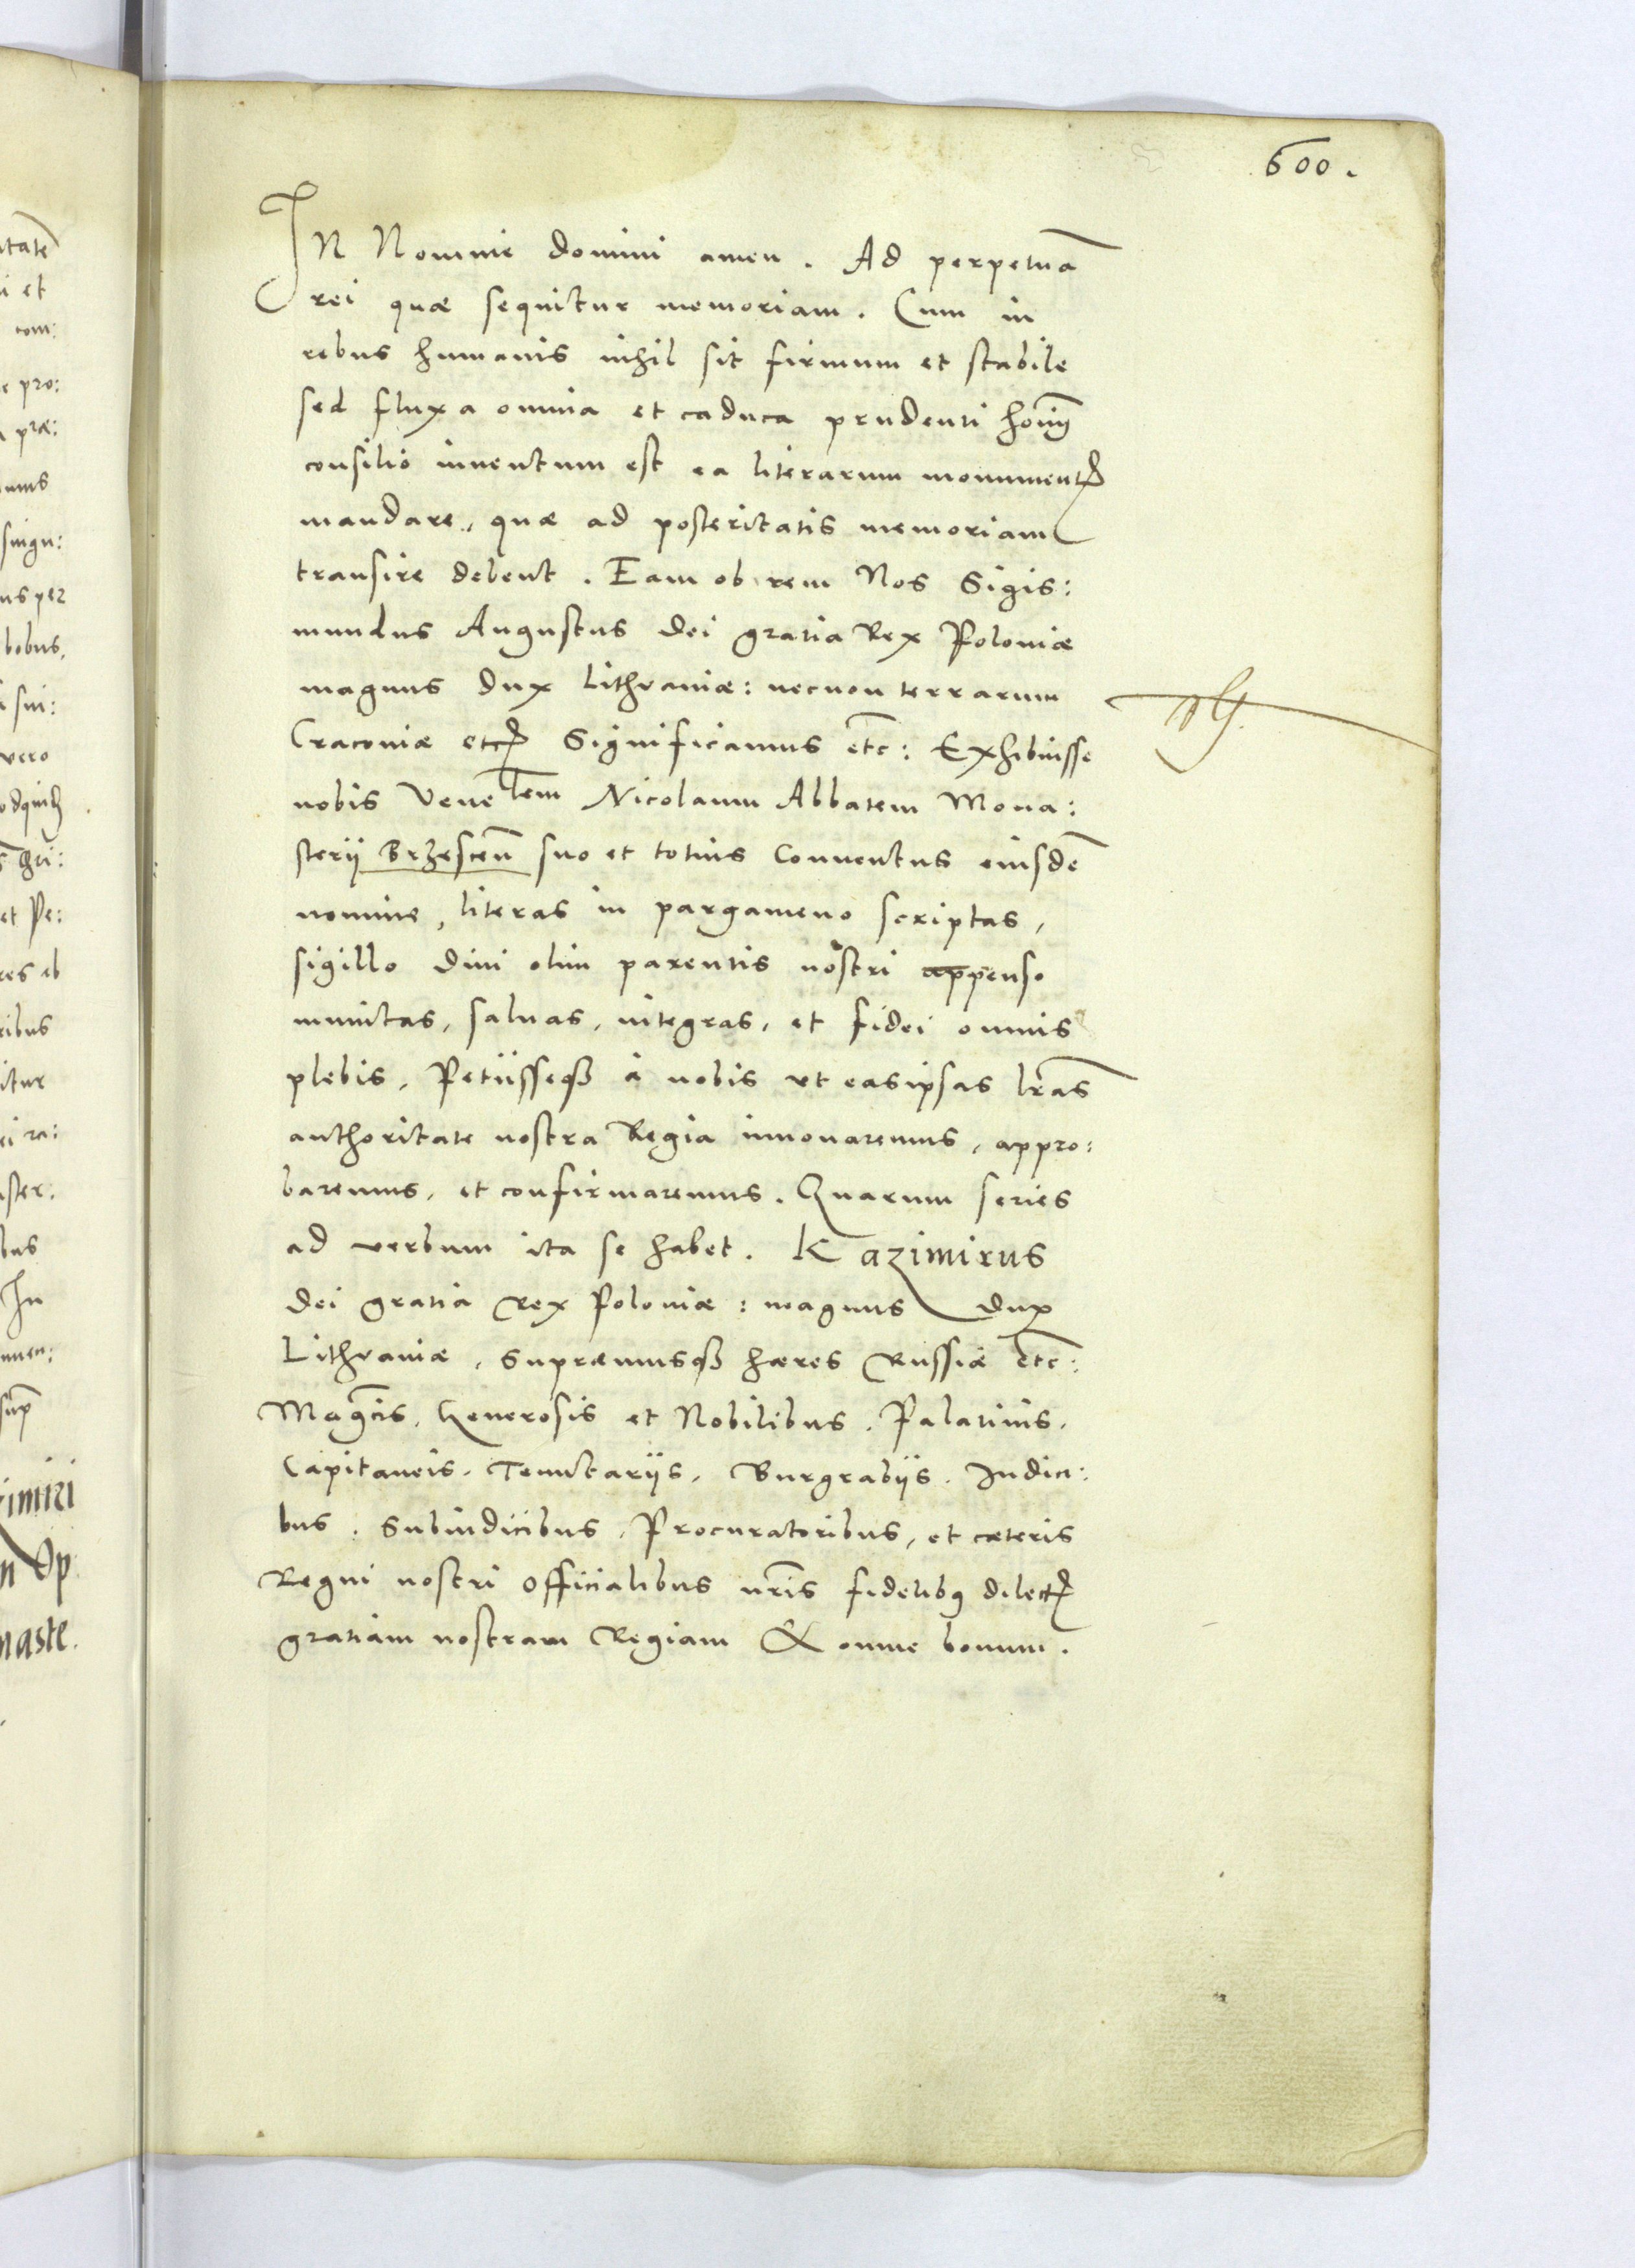 600.
IN Nomine domini amen. Ad perpetuā
rei quæ sequitur memoriam. Cum in
rebus humanis nihil sit firmum et stabile
sed fluxa omnia et caduca prudenti hoīm
consilio inuentum est ea literarum monumentꝭ
mandare, quæ ad posteritatis memoriam
transire debent. Eam ob rem Nos Sigis:
mundus Augustus dei gratia Rex Poloniæ
magnus dux Lithvaniæ: necnon terrarum
Cracoviæ etcꝭ Significamus etc: Exhibuisse
nobis Venelem Nicolaum Abbatem Mona:
sterij Brzescen̄ suo et totius Conuentus eiusdē
nomine, literas in pargameno scriptas,
sigillo diui olim parentis nostri appenso
munitas, saluas, integras, et fidei omnis
plebis, Petijsseqꝫ à nobis vt easipsas lr̄as
authoritate nostra Regia innouaremus, appro:
baremus, et confirmaremus. Quarum series
ad verbum ita se habet. Kazimirus
dei gratia Rex Poloniæ: magnus dux
Lithvaniæ, Supræmusqꝫ hæres Russiæ etc:
Mag̅cis, Generosis et Nobilibus, Palatinis,
Capitaneis, Tenutarijs, Burgrabijs, Iudici:
bus, Subiudicibus, Procuratoribus, et cæteris
Regni nostri Officialibus nr̄is fidelibꝰ dilectꝭ
gratiam nostram Regiam & omne bonum.